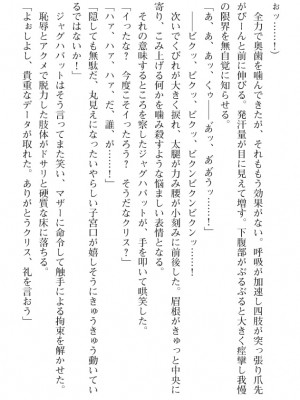 おッ……！
　全力で奥歯を噛んできたが、それももう効果がない。呼吸が加速し四肢が突っ張り爪先
がぴーんと前に伸びる。発汗量が目に見えて増す。下腹部がぷるぷると大きく痙攣し我慢
の限界を無自覚に知らせる。
「あ、ああ、くぅ――あっ、ああうッ……！」
　――ビクッ、ビクッ、ビクンビクンビクンッ……！
　次いでくびれが大きく捩れ、太腿が力み腰が小刻みに前後した。眉根がきゅっと中央に
寄り、こみ上げる何かを噛み殺すような悩ましい表情となる。
　その意味するところを察したジャグハバットが、手を叩いて哄笑した。
「イったな？　今度こそイったろう？　そうだなクリス？」
「ハァ、ハァ、ハァ、だ、誰、が……！」
「隠しても無駄だ、丸見えになったいやらしい子宮口が嬉しそうにきゅうきゅう動いてい
るではないか！」
　ジャグハバットはそう言ってまた笑い、マザーに命令して触手による拘束を解かせた。
　恥辱とアクメで脱力した肢体がドサリと硬質な床に落ちる。
「よしよし、貴重なデータが取れた。ありがとうクリス、礼を言おう」